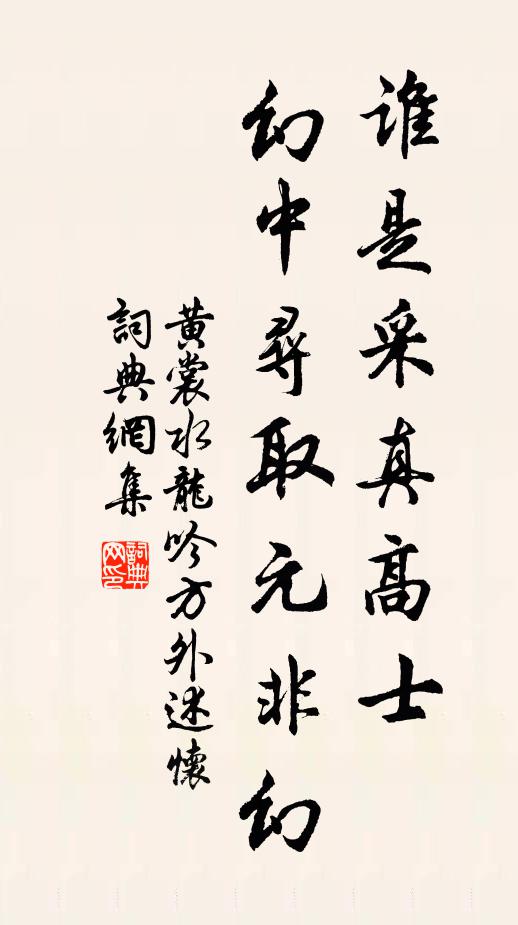 誰是采真高士
幻中尋取元非幻
黃裳水龍吟方外述懷
詞典網集
詞典
网印